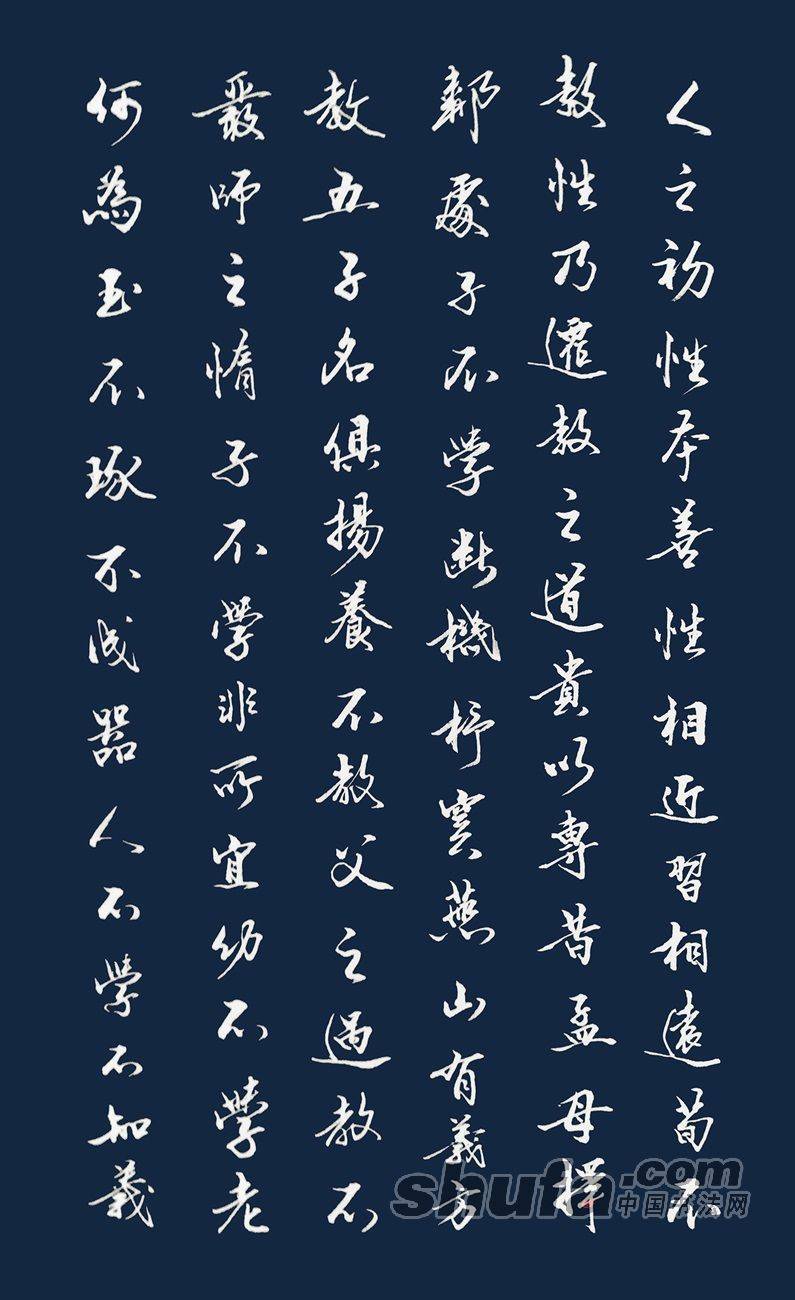 人之初性本善性相近習相遠苟不
教性乃遷教之道貴以專昔孟母擇
鄰處子不學斷機杼竇燕山有義方
教五子名俱揚養不教父之過教不
嚴師之惰子不學非所宜幼不學老
何為玉不琢不成器人不學不知義
shufa.com
中国书法网